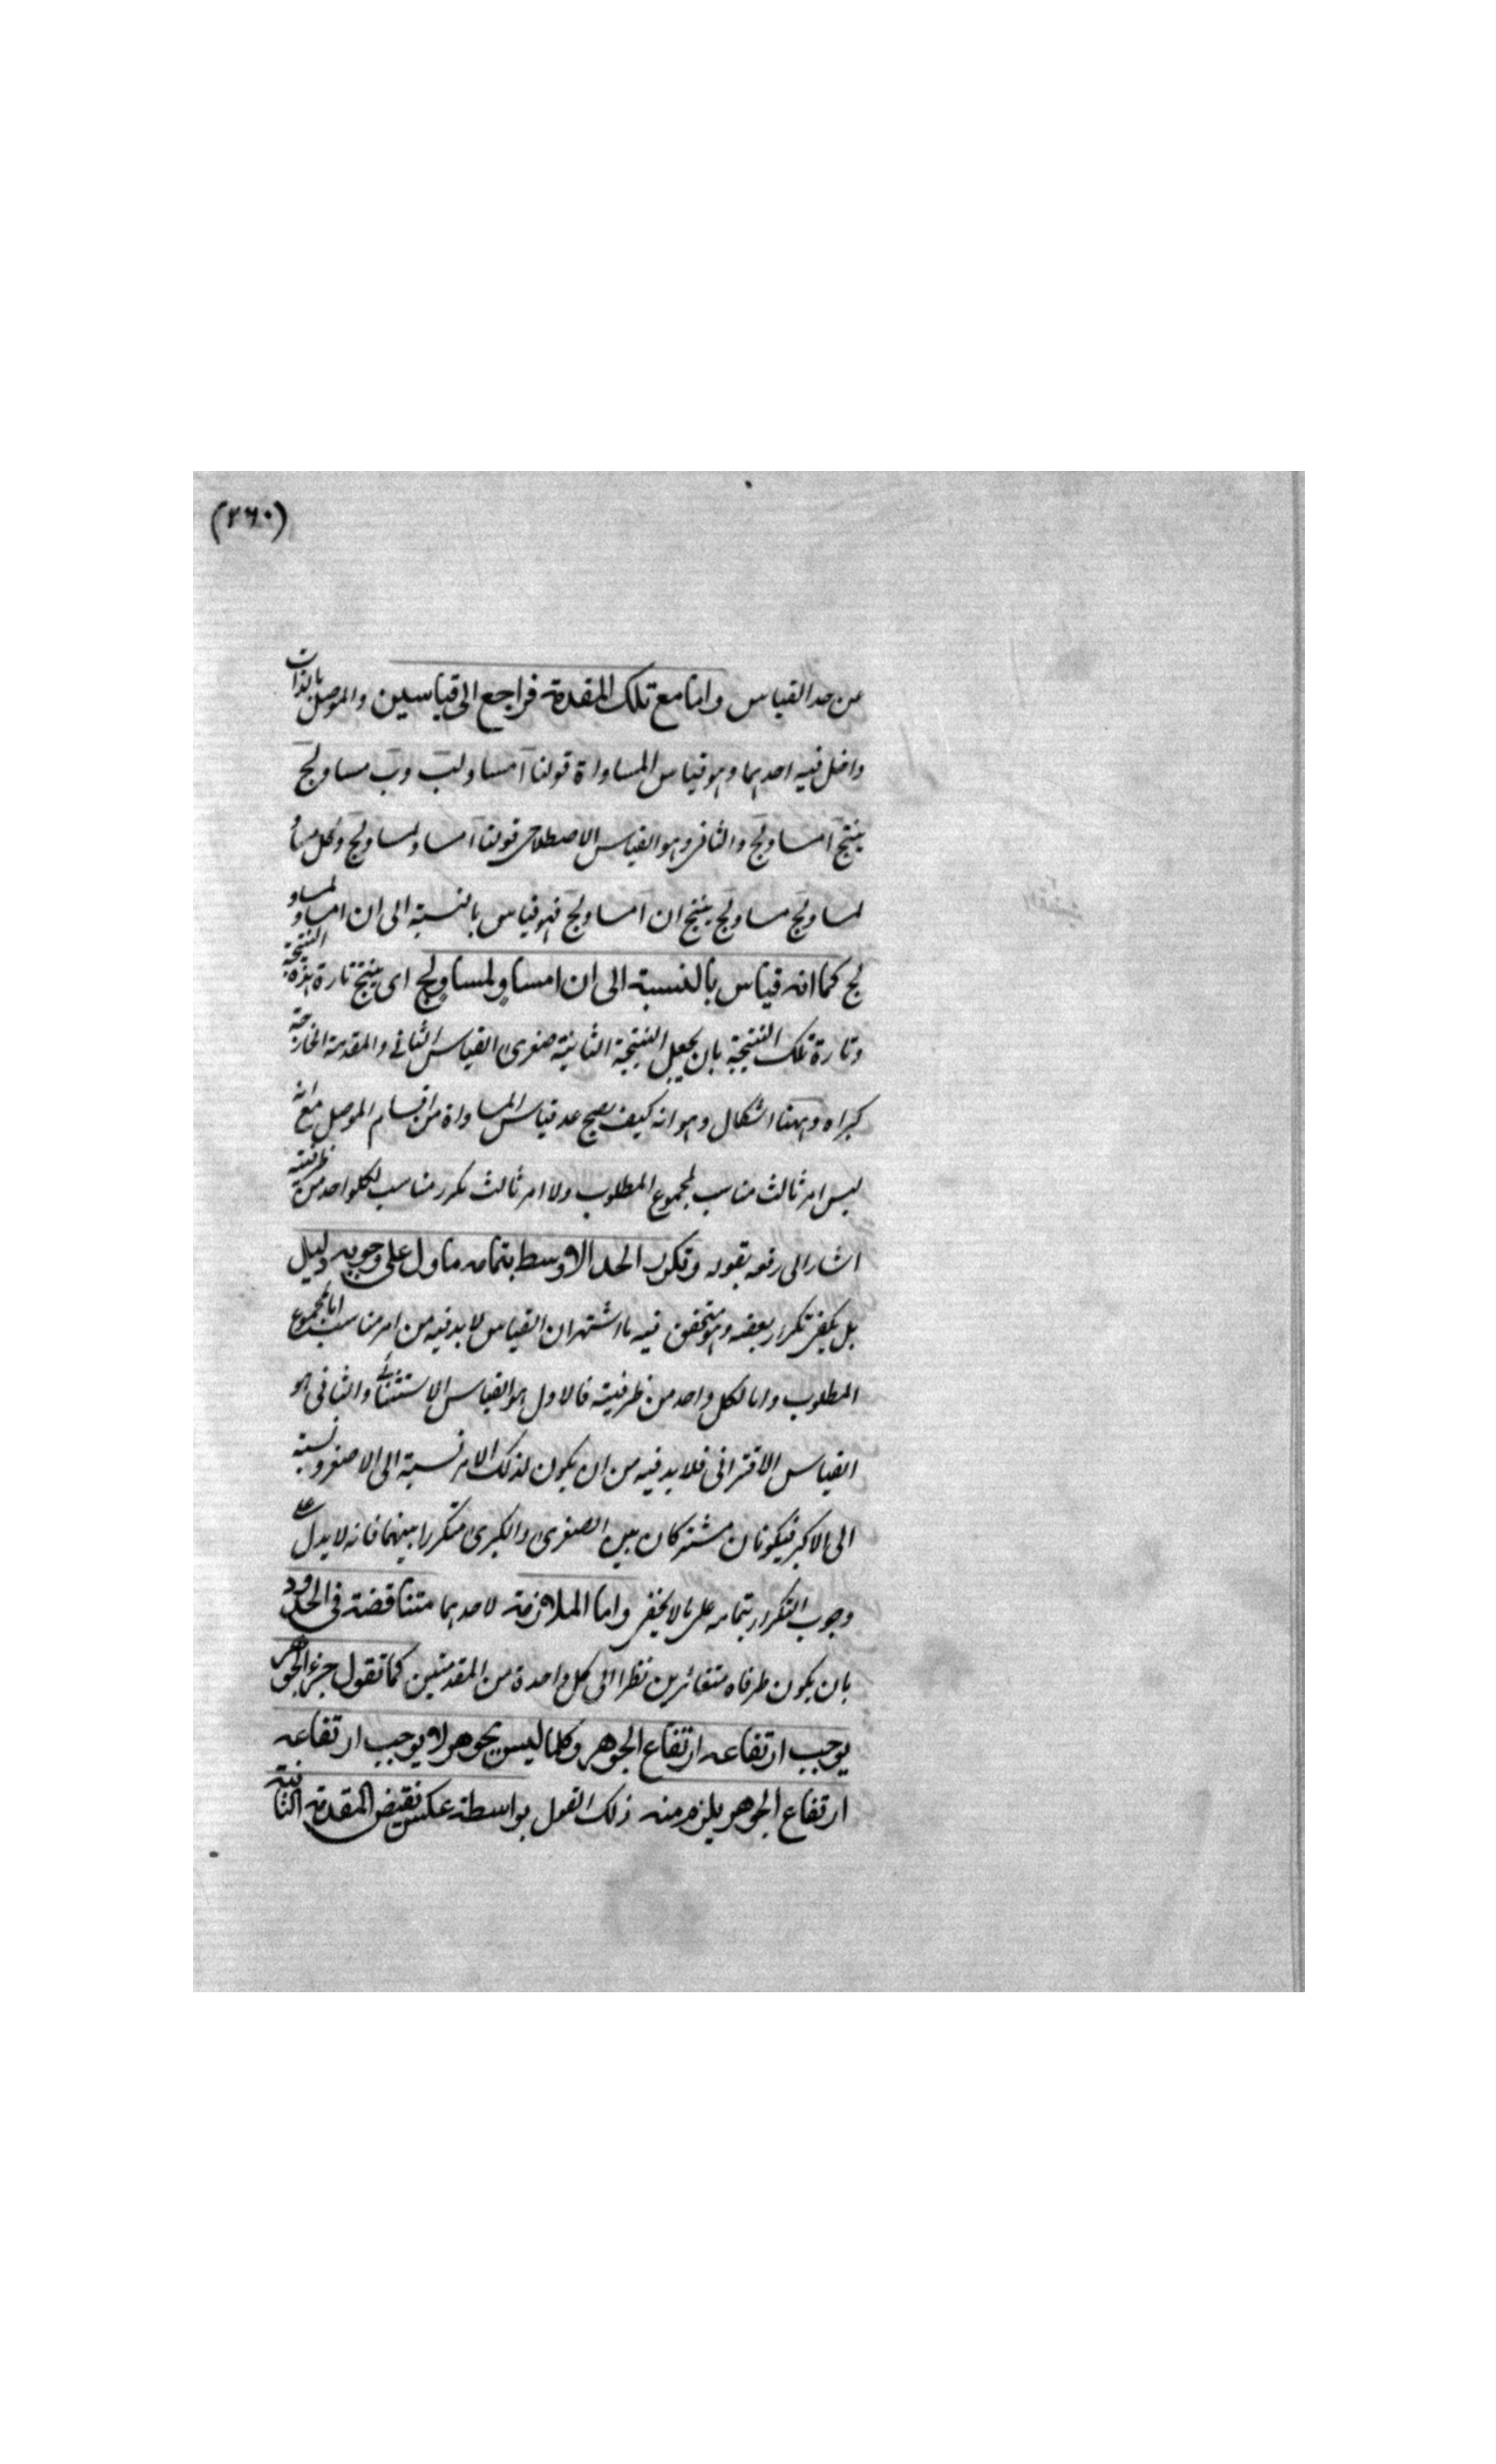 (٢٦٠)
من حد القياس واما مع تلك المقدمة فراجع الى قياسين والموصل بالذات
داخل فيه احدهما وهو قياس المساواة قولنا آ مساو لب وب مساو لج
ينتج آ مساو لج والثانى وهو القياس الاصطلاحى قولنا آ مساو لمساو لج وكل مساو
لمساو لج مساو لج ينتج ان آ مساو لج فهو قياس بالنسبة الى ان ا مساو لمساو
لج كما انه قياس بالنسبة الى ان ا مساو لمساو لج اى ينتج تارة هذه النتيجة
وتارة تلك النتيجة بان يجعل النتيجة الثانية صغرى القياس الثانى والمقدمة الخارجة
كبراه وههنا اشكال وهو انه كيف يصح عد قياس المساواة من اقسام الموصل مع انه
ليس امر ثالث مناسب لمجموع المطلوب ولا امر ثالث مكرر مناسب لكلواحد من طرفيه
اشار الى رفعه بقوله وتكرر الحد الاوسط بتمامه ما دل على وجوبه دليل
بل يكفى تكرار بعضه وهو متحقق فيه ما اشتهر ان القياس لا بد فيه من امر مناسب اما لمجموع
المطلوب واما لكل واحد من طرفيه فالاول هو القياس الاستثنائى والثانى هو
القياس الاقترانى فلا بد فيه من ان يكون لذلك الامر نسبة الى الاصغر ونسبة
الى الاكبر فيكونان مشتركان بين الصغرى والكبرى متكررا بينهما فانه لا يدل على
وجوب التكرار بتمامه على ما لا يخفى واما الملازمة لاحدهما متناقضة فى الحدود
بان يكون طرفاه متغائرين نظرا الى كل واحدة من المقدمتين كما تقول جزء الجوهر
يوجب ارتفاعه ارتفاع الجوهر وكلما ليس بجوهر لا يوجب ارتفاعه
ارتفاع الجوهر يلزم منه ذلك القول بواسطة عكس نقيض المقدمة الثانية